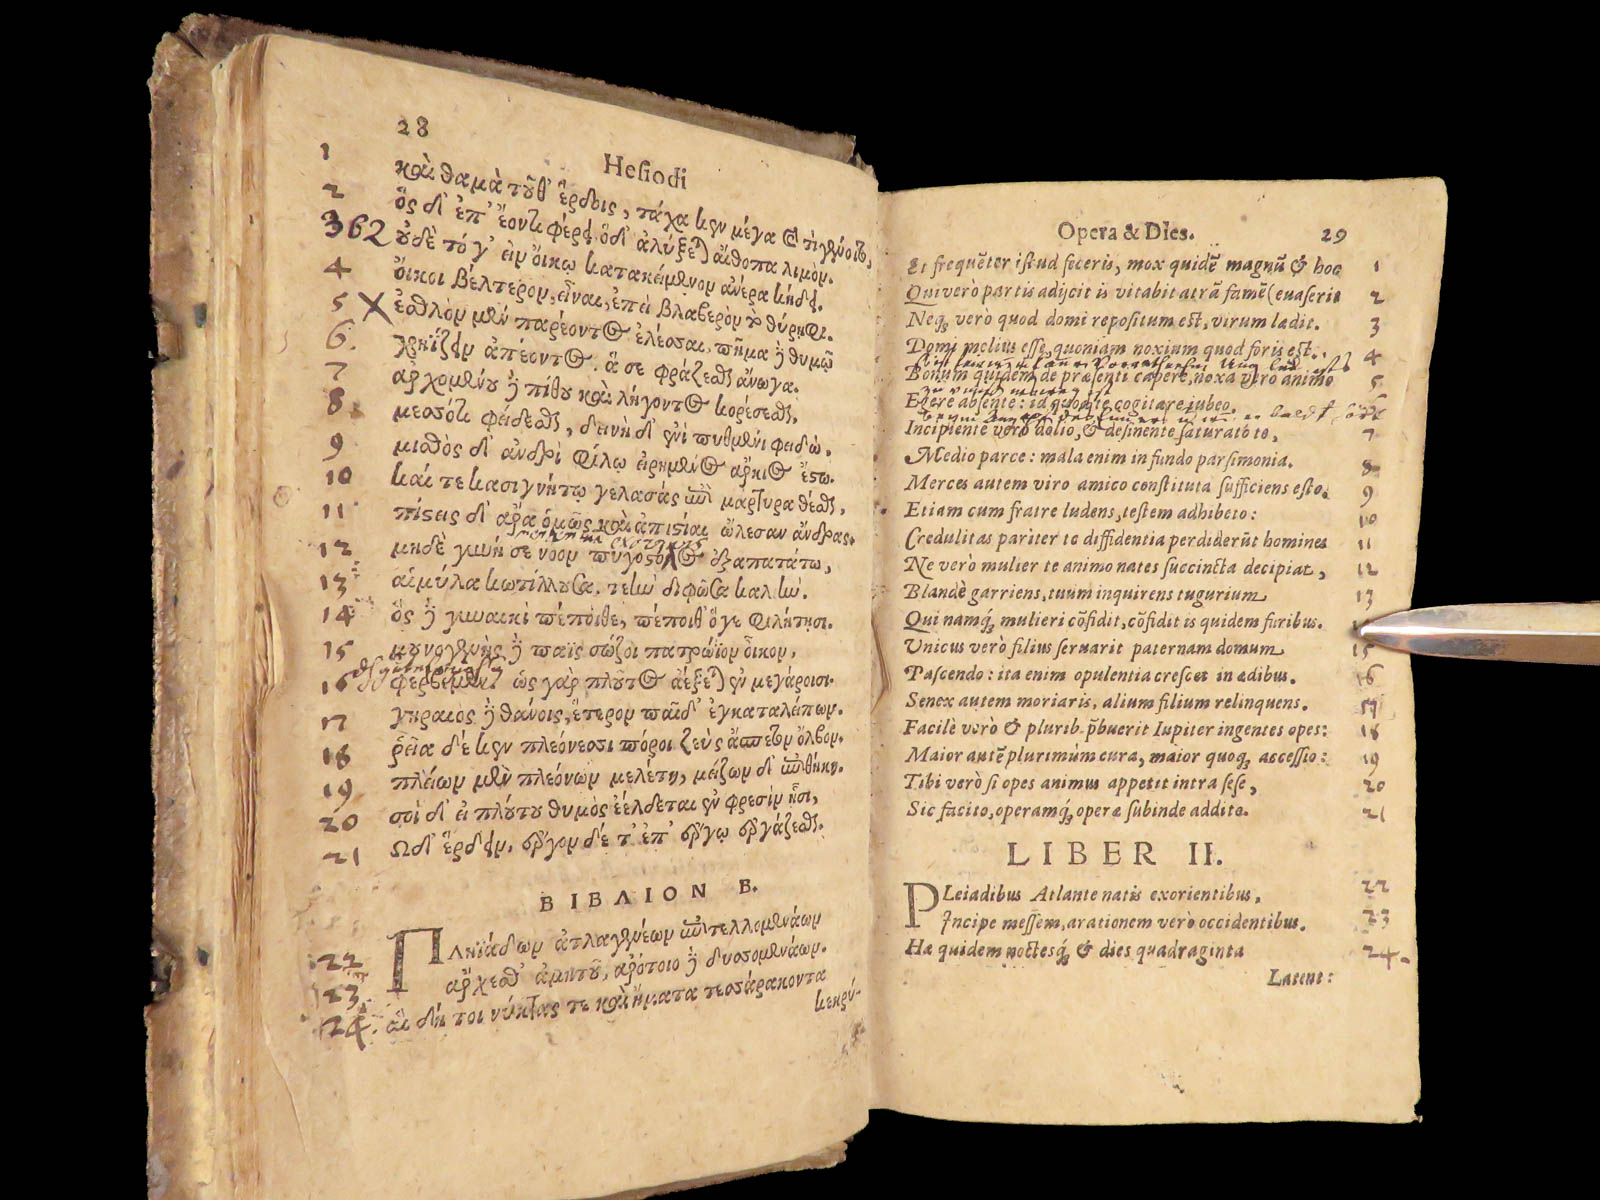 28
Heſiodi
1 καὶ θαμὰ τοῦθ' ἕρδοις, τάχα κεν μέγα καὶ τὸ γένοιτο,
2 ὃς δ' ἐπ' ἐόντι φέρει, ὁ δ' ἀλύξεται αἴθοπα λιμόν.
362 οὐδὲ τό γ' εἰν οἴκῳ κατακείμενον ἀνέρα κήδει.
4 οἴκοι βέλτερον εἶναι, ἐπεὶ βλαβερὸν τὸ θύρηφι.
5 X ἐσθλὸν μὲν παρέοντος ἑλέσθαι, πῆμα δὲ θυμῷ
6. χρηΐζειν ἀπέοντος. ἅ σε φράζεσθαι ἄνωγα.
7 ἀρχομένου δὲ πίθου καὶ λήγοντος κορέσασθαι,
8 μεσσόθι φείδεσθαι, δεινὴ δ' ἐνὶ πυθμένι φειδώ.
9 μισθὸς δ' ἀνδρὶ φίλῳ εἰρημένος ἄρκιος ἔστω.
10 καί τε κασιγνήτῳ γελάσας ἐπὶ μάρτυρα θέσθαι,
11 πίστεις δ' ἄρα ὁμῶς καὶ ἀπιστίαι ὤλεσαν ἄνδρας.
12 μηδὲ γυνή σε νόον πυγοστόλος ἐξαπατάτω,
13 αἱμύλα κωτίλλουσα, τεὴν διφῶσα καλιήν.
14 ὃς δὲ γυναικὶ πέποιθε, πέποιθ' ὅγε φιλήτῃσι.
15 μουνογενὴς δὲ παῖς σώζοι πατρώϊον οἶκον,
16 φερβέμεν· ὣς γὰρ πλοῦτος ἀέξεται ἐν μεγάροισι.
17 γηραιὸς δὲ θάνοις, ἕτερον παῖδ' ἐγκαταλείπων.
18 ῥεῖα δέ κεν πλεόνεσσι πόροι ζεὺς ἄσπετον ὄλβον.
19 πλείων μὲν πλεόνων μελέτη, μείζων δ' ἐπιθήκη.
20 σοὶ δ' εἰ πλούτου θυμὸς ἐέλδεται ἐν φρεσὶν ᾗσι,
21 Ωδ' ἕρδειν, ἔργον δέ τ' ἐπ' ἔργῳ ἐργάζεσθαι.
ΒΙΒΛΙΟΝ Β.
22 Πληϊάδων ἀτλαγενέων ἐπιτελλομενάων
23 ἄρχεσθ' ἀμητοῦ, ἀρότοιο δὲ δυσομενάων.
24. αἳ δή τοι νύκτας τε καὶ ἤματα τεσσαράκοντα
κεκρύ-
Opera & Dies. 29
Et frequēter iſtud feceris, mox quidē magnū & hoc 1
Qui verò partis adijcit is vitabit atrā famē (euaſerit 2
Neq; verò quod domi repoſitum eſt, virum lædit. 3
Domi melius eſſe, quoniam noxium quod foris eſt. 4
Bonum quidem de præſenti capere, noxa verò animo 5
Egere abſente: id quoq; te cogitare iubeo. 6
Incipiente verò dolio, & deſinente ſaturato te, 7
Medio parce: mala enim in fundo parſimonia. 8
Merces autem viro amico conſtituta ſufficiens eſto. 9
Etiam cum fratre ludens, teſtem adhibeto: 10
Credulitas pariter ac diffidentia perdiderūt homines 11
Ne verò mulier te animo nates ſuccincta decipiat, 12
Blandè garriens, tuum inquirens tugurium 13
Qui namq; mulieri cōfidit, cōfidit is quidem furibus.
Vnicus verò filius ſeruarit paternam domum 15
Paſcendo: ita enim opulentia creſcet in ædibus. 16
Senex autem moriaris, alium filium relinquens. 17
Facilè verò & plurib. p̄buerit Iupiter ingentes opes: 18
Maior autē plurimùm cura, maior quoq; acceſſio: 19
Tibi verò ſi opes animus appetit intra ſeſe, 20
Sic facito, operamq; operæ ſubinde addito. 21
LIBER II.
PLeiadibus Atlante natis exorientibus, 22
Incipe meſſem, arationem verò occidentibus. 23
Hæ quidem noctesq; & dies quadraginta 24.
Latent: